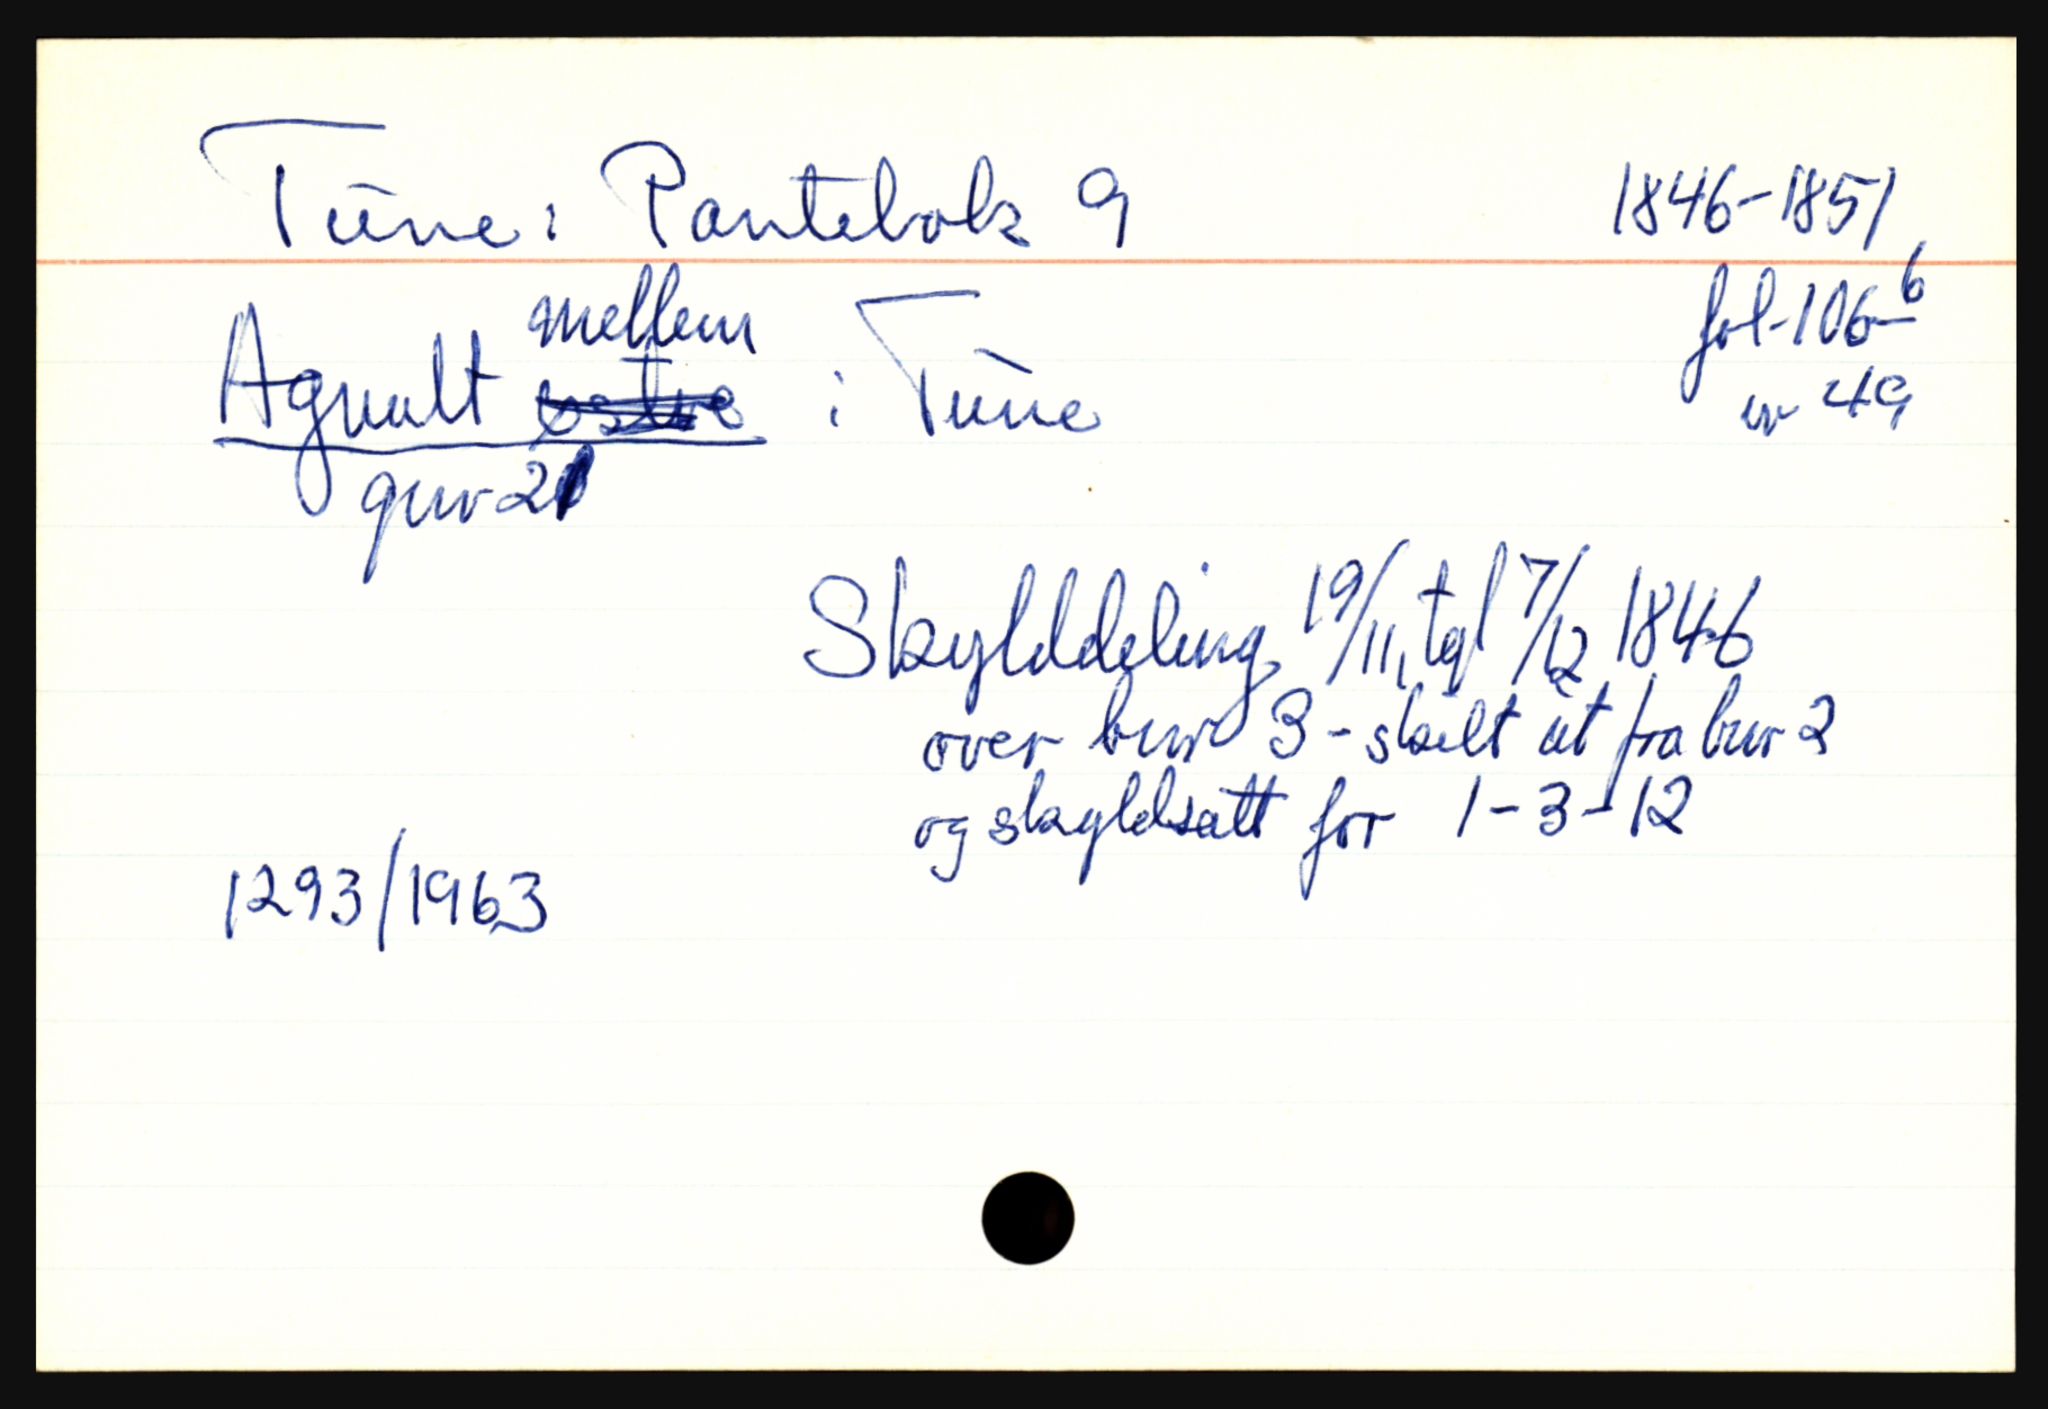 Tune: Pantebok 9 1846-1851
fol. 106 b
nr 49
Agnalt mellem østre i Tune
gnr 21
Skylddeling 19/11, tgl 7/12 1846
over bnr 3 - skilt ut fra bnr 2
og skyldsatt for 1-3-12
1293/1963